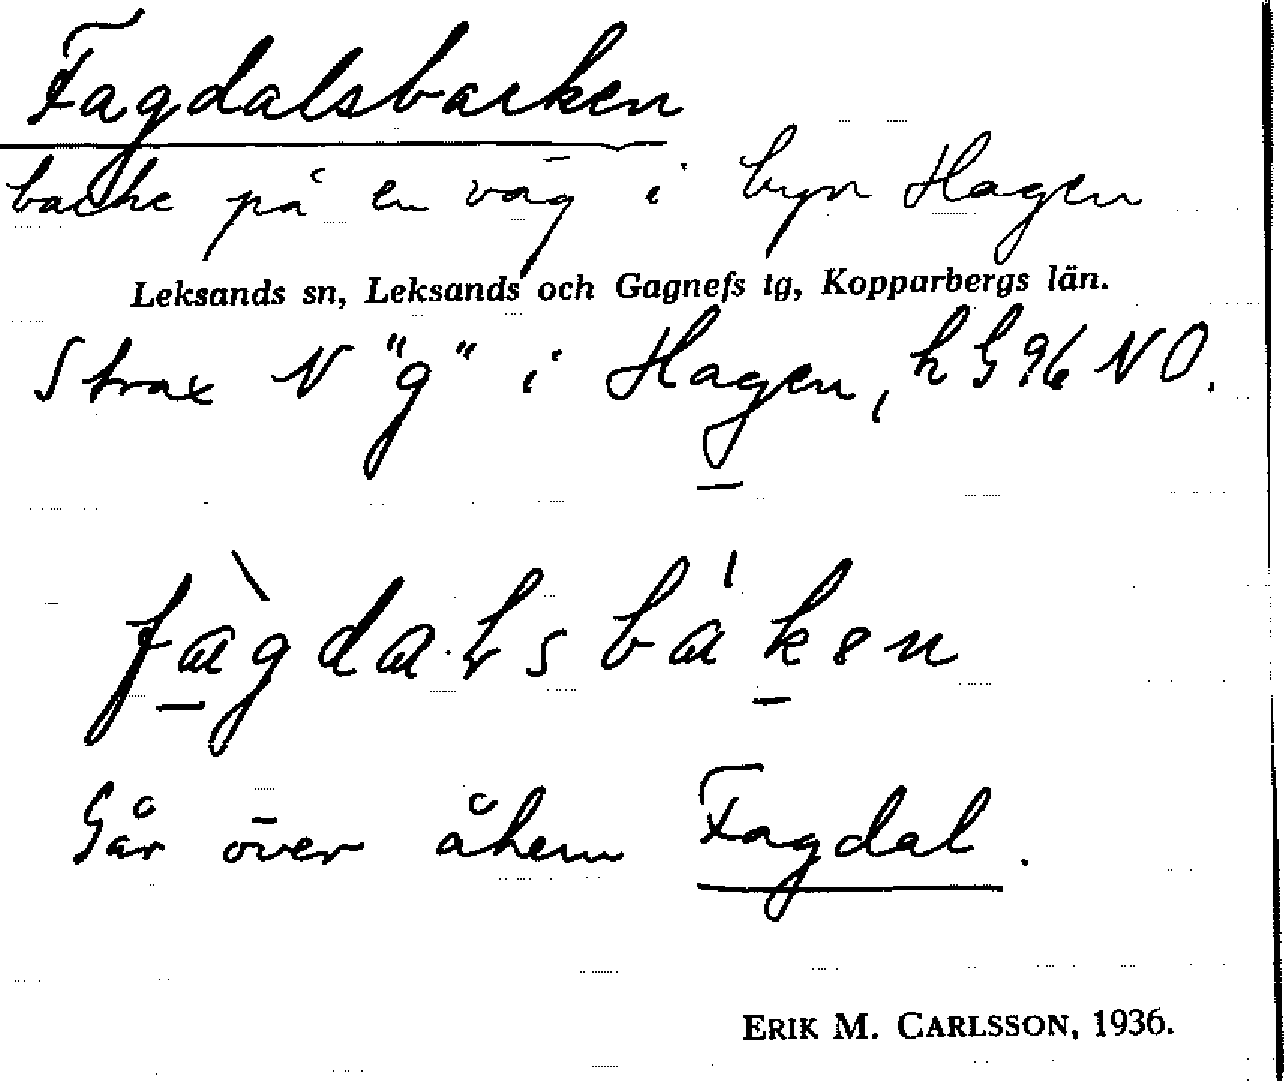 Fagdalsbacken
backe på en väg i byn Hagen
Leksands sn, Leksands och Gagnefs tg, Kopparbergs län.
Strax N "g" i Hagen, h G 96 NO.
fàgdaḷsbáken
Går över åkern Fagdal.
ERIK M. CARLSSON, 1936.